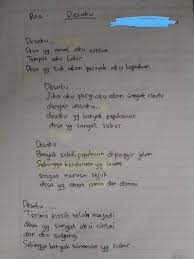 Puisi : Desaku
Desaku...
Desa yg amat aku cintai
Tempat aku lahir
Desa yg tak akan pernah aku lupakan
Desaku...
Jika aku pergi aku akan sangat rindu
dengan desaku...
desa yg banyak pepohonan
desa yg sangat subur
Desaku
Banyak sekali pepohonan dipinggir jalan
Sehingga kendaraan yg lewat
sangat merasa sejuk
desa yg amat aman dan damai
Desaku...
Terima kasih telah menjadi
desa yg sangat aku cintai
dan aku sayangi
Sehingga banyak tanaman yg subur